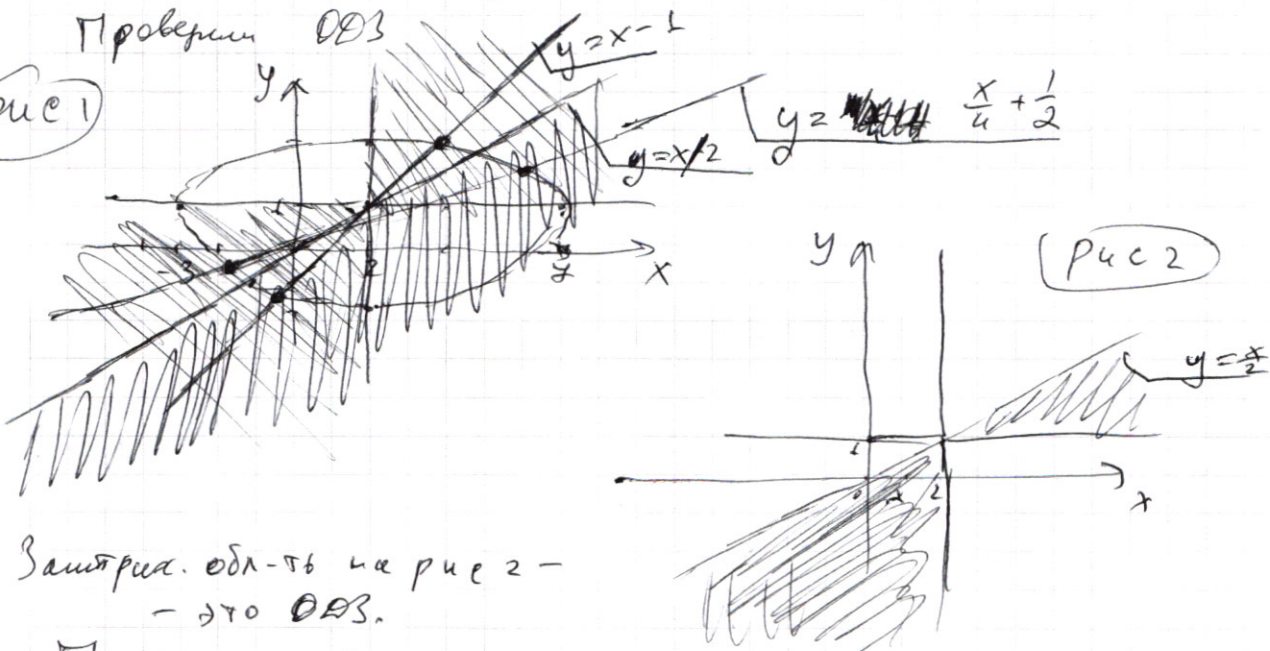 Проверим ОДЗ
рис 1
y
y = x - 1
y = x/4 + 1/2
y = x/2
1
-3
2
7
x
y
рис 2
y = x/2
1
0
2
x
Заштрих. обл-ть на рис 2 -
- это ОДЗ.